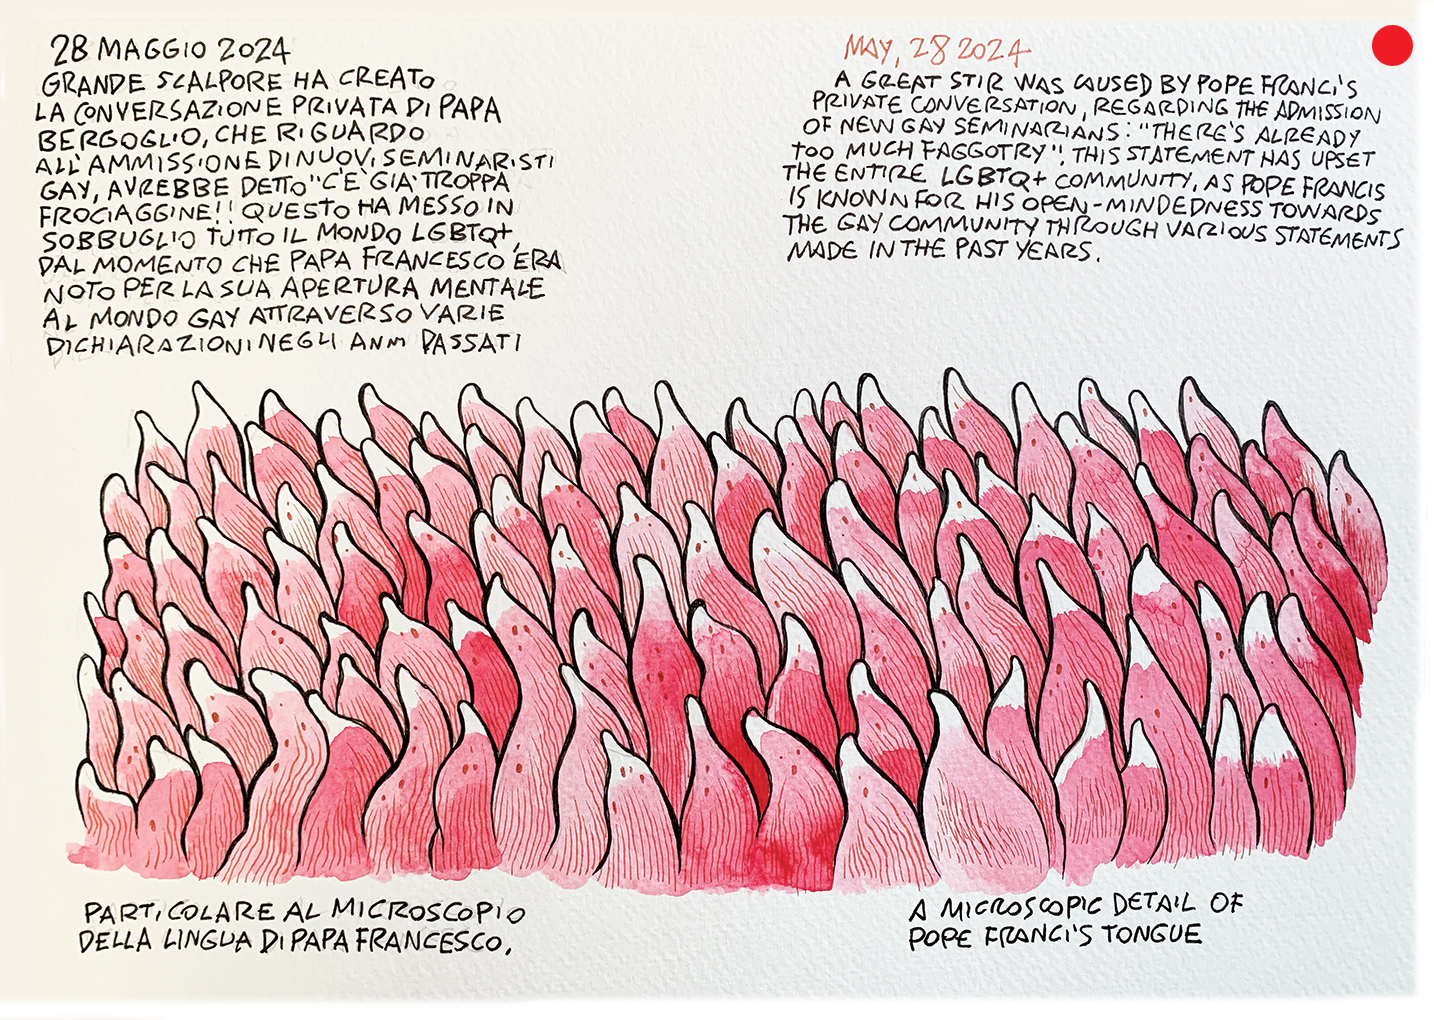 28 MAGGIO 2024
GRANDE SCALPORE HA CREATO
LA CONVERSAZIONE PRIVATA DI PAPA
BERGOGLIO, CHE RIGUARDO
ALL'AMMISSIONE DI NUOVI SEMINARISTI
GAY, AVREBBE DETTO "C'E' GIA' TROPPA
FROCIAGGINE!! QUESTO HA MESSO IN
SOBBUGLIO TUTTO IL MONDO LGBTQ+,
DAL MOMENTO CHE PAPA FRANCESCO ERA
NOTO PER LA SUA APERTURA MENTALE
AL MONDO GAY ATTRAVERSO VARIE
DICHIARAZIONI NEGLI ANNI PASSATI
MAY, 28 2024
A GREAT STIR WAS CAUSED BY POPE FRANCI'S
PRIVATE CONVERSATION, REGARDING THE ADMISSION
OF NEW GAY SEMINARIANS: "THERE'S ALREADY
TOO MUCH FAGGOTRY". THIS STATEMENT HAS UPSET
THE ENTIRE LGBTQ+ COMMUNITY, AS POPE FRANCIS
IS KNOWN FOR HIS OPEN-MINDEDNESS TOWARDS
THE GAY COMMUNITY THROUGH VARIOUS STATEMENTS
MADE IN THE PAST YEARS.
PARTICOLARE AL MICROSCOPIO
DELLA LINGUA DI PAPA FRANCESCO.
A MICROSCOPIC DETAIL OF
POPE FRANCI'S TONGUE